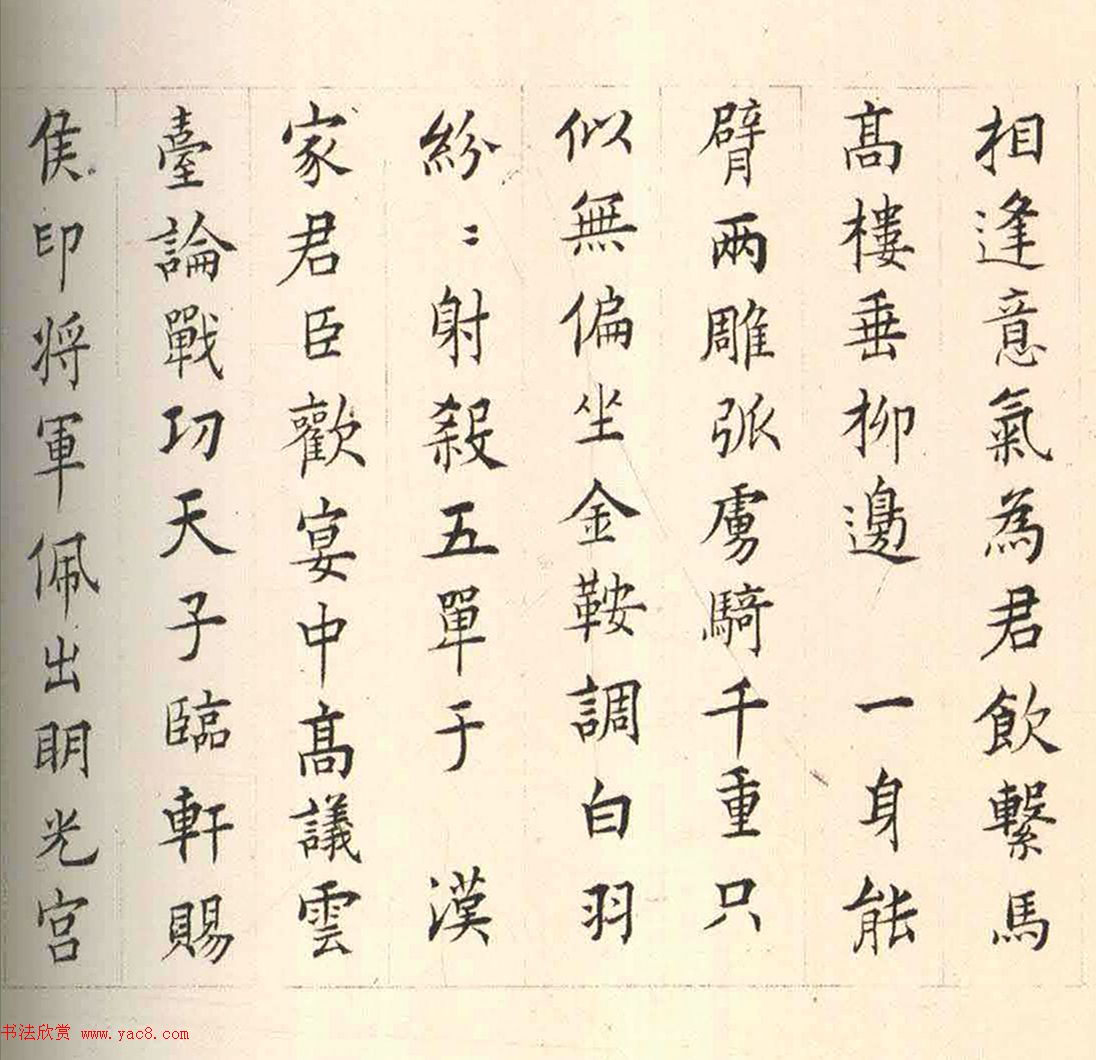 相逢意氣為君飲繫馬
髙樓垂柳邊 一身能
臂兩雕弧虜騎千重只
似無偏坐金鞍調白羽
紛〻射殺五單于 漢
家君臣歡宴中髙議雲
臺論戰功天子臨軒賜
侯印将軍佩出明光宮
书法欣赏 www.yac8.com